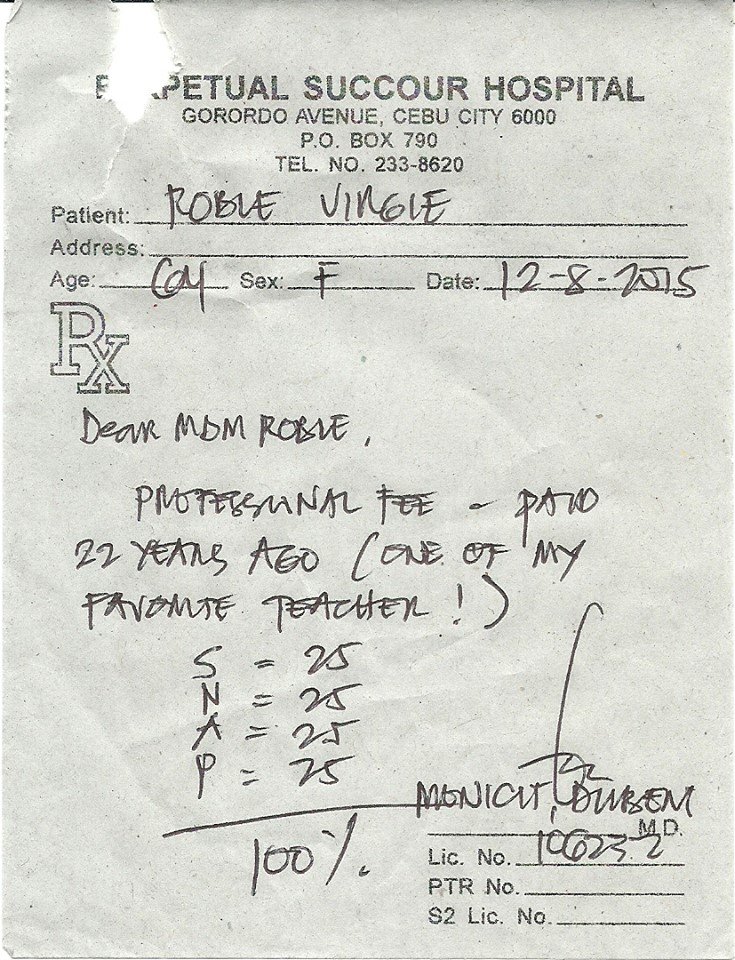 PERPETUAL SUCCOUR HOSPITAL
GORORDO AVENUE, CEBU CITY 6000
P.O. BOX 790
TEL. NO. 233-8620
Patient: ROBLE VIRGIE
Address:
Age: 60y Sex: F Date: 12-8-2015
Rx
Dear MDM ROBLE,
PROFESSIONAL FEE - PAID
22 YEARS AGO (ONE OF MY
FAVORITE TEACHER!)
S = 25
N = 25
A = 25
P = 25
100%.
M.D.
Lic. No. 106232
PTR No.
S2 Lic. No.